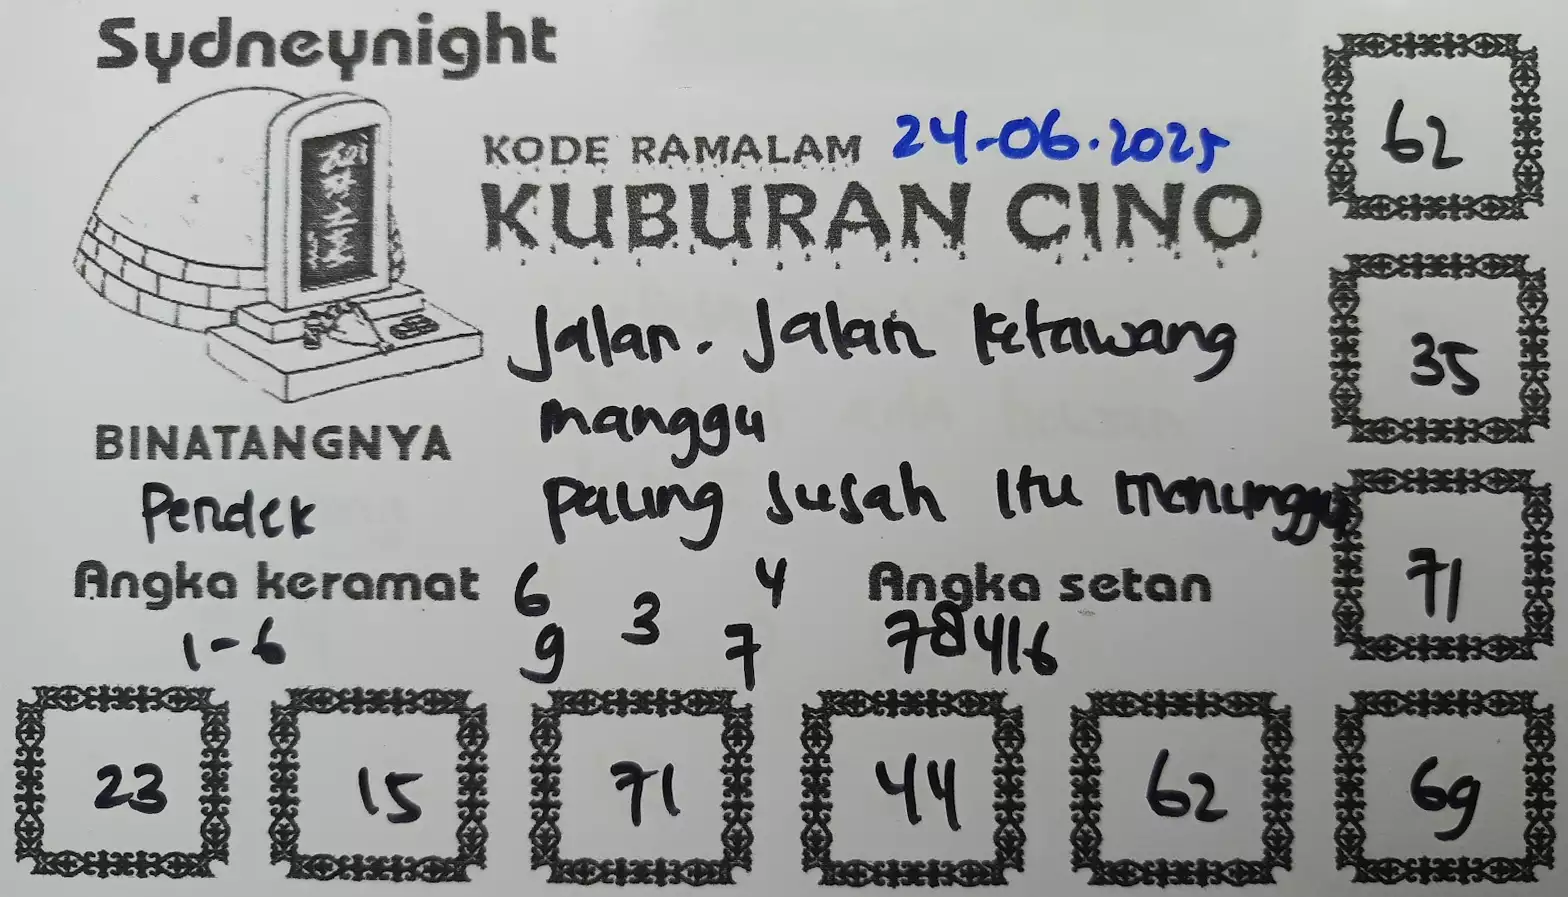 Sydneynight
KODE RAMALAM 24-06.2025
KUBURAN CINO
Jalan. Jalan ketawang
manggu
paling susah itu menunggu
BINATANGNYA
Pendek
Angka keramat
1-6
6 3 4
9 7
Angka setan
78416
62
35
71
23 15 71 44 62 69